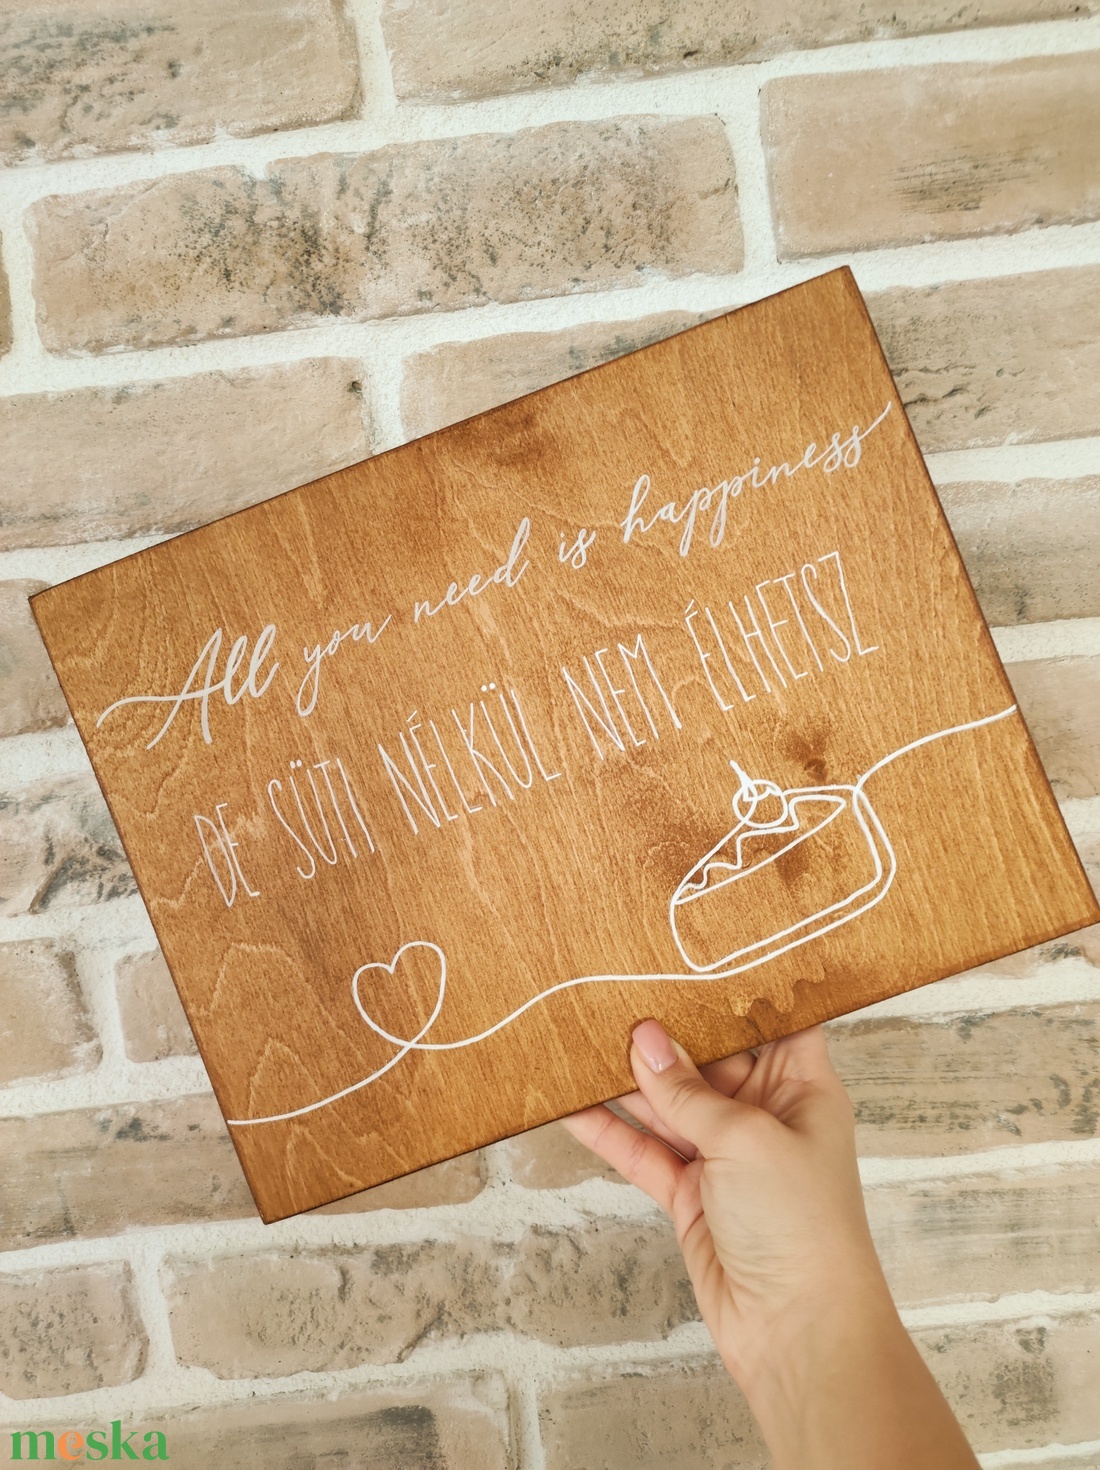 All you need is happiness
DE SÜTI NÉLKÜL NEM ÉLHETSZ
meska